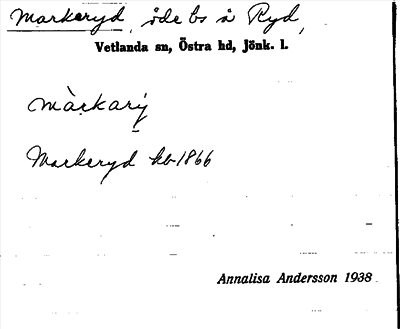 Markeryd, öde bs å Ryd,
Vetlanda sn, Östra hd, Jönk. l.
màkarị̀
Markeryd kb 1866
Annalisa Andersson 1938